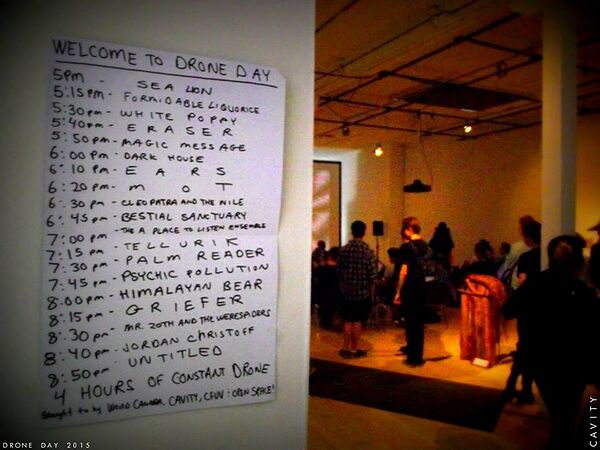 WELCOME TO DRONE DAY
5pm - SEA LION
5:15pm - FORMIDABLE LIQUORICE
5:30pm - WHITE POPPY
5:40pm - ERASER
5:50pm - MAGIC MESSAGE
6:00pm - DARK HOUSE
6:10pm - EARS
6:20pm - MOT
6:30pm - CLEOPATRA AND THE NILE
6:45pm - BESTIAL SANCTUARY
7:00pm - THE A PLACE TO LISTEN ENSEMBLE
7:15pm - TELLURIK
7:30pm - PALM READER
7:45pm - PSYCHIC POLLUTION
8:00pm - HIMALAYAN BEAR
8:15pm - GRIEFER
8:30pm - MR. ZOTH AND THE WERESPIDERS
8:40pm - JORDAN CHRISTOFF
8:50pm - UNTITLED
4 HOURS OF CONSTANT DRONE
Brought to by WEIRD CANADA, CAVITY, CFUV : OPEN SPACE!
DRONE DAY 2015
CAVITY